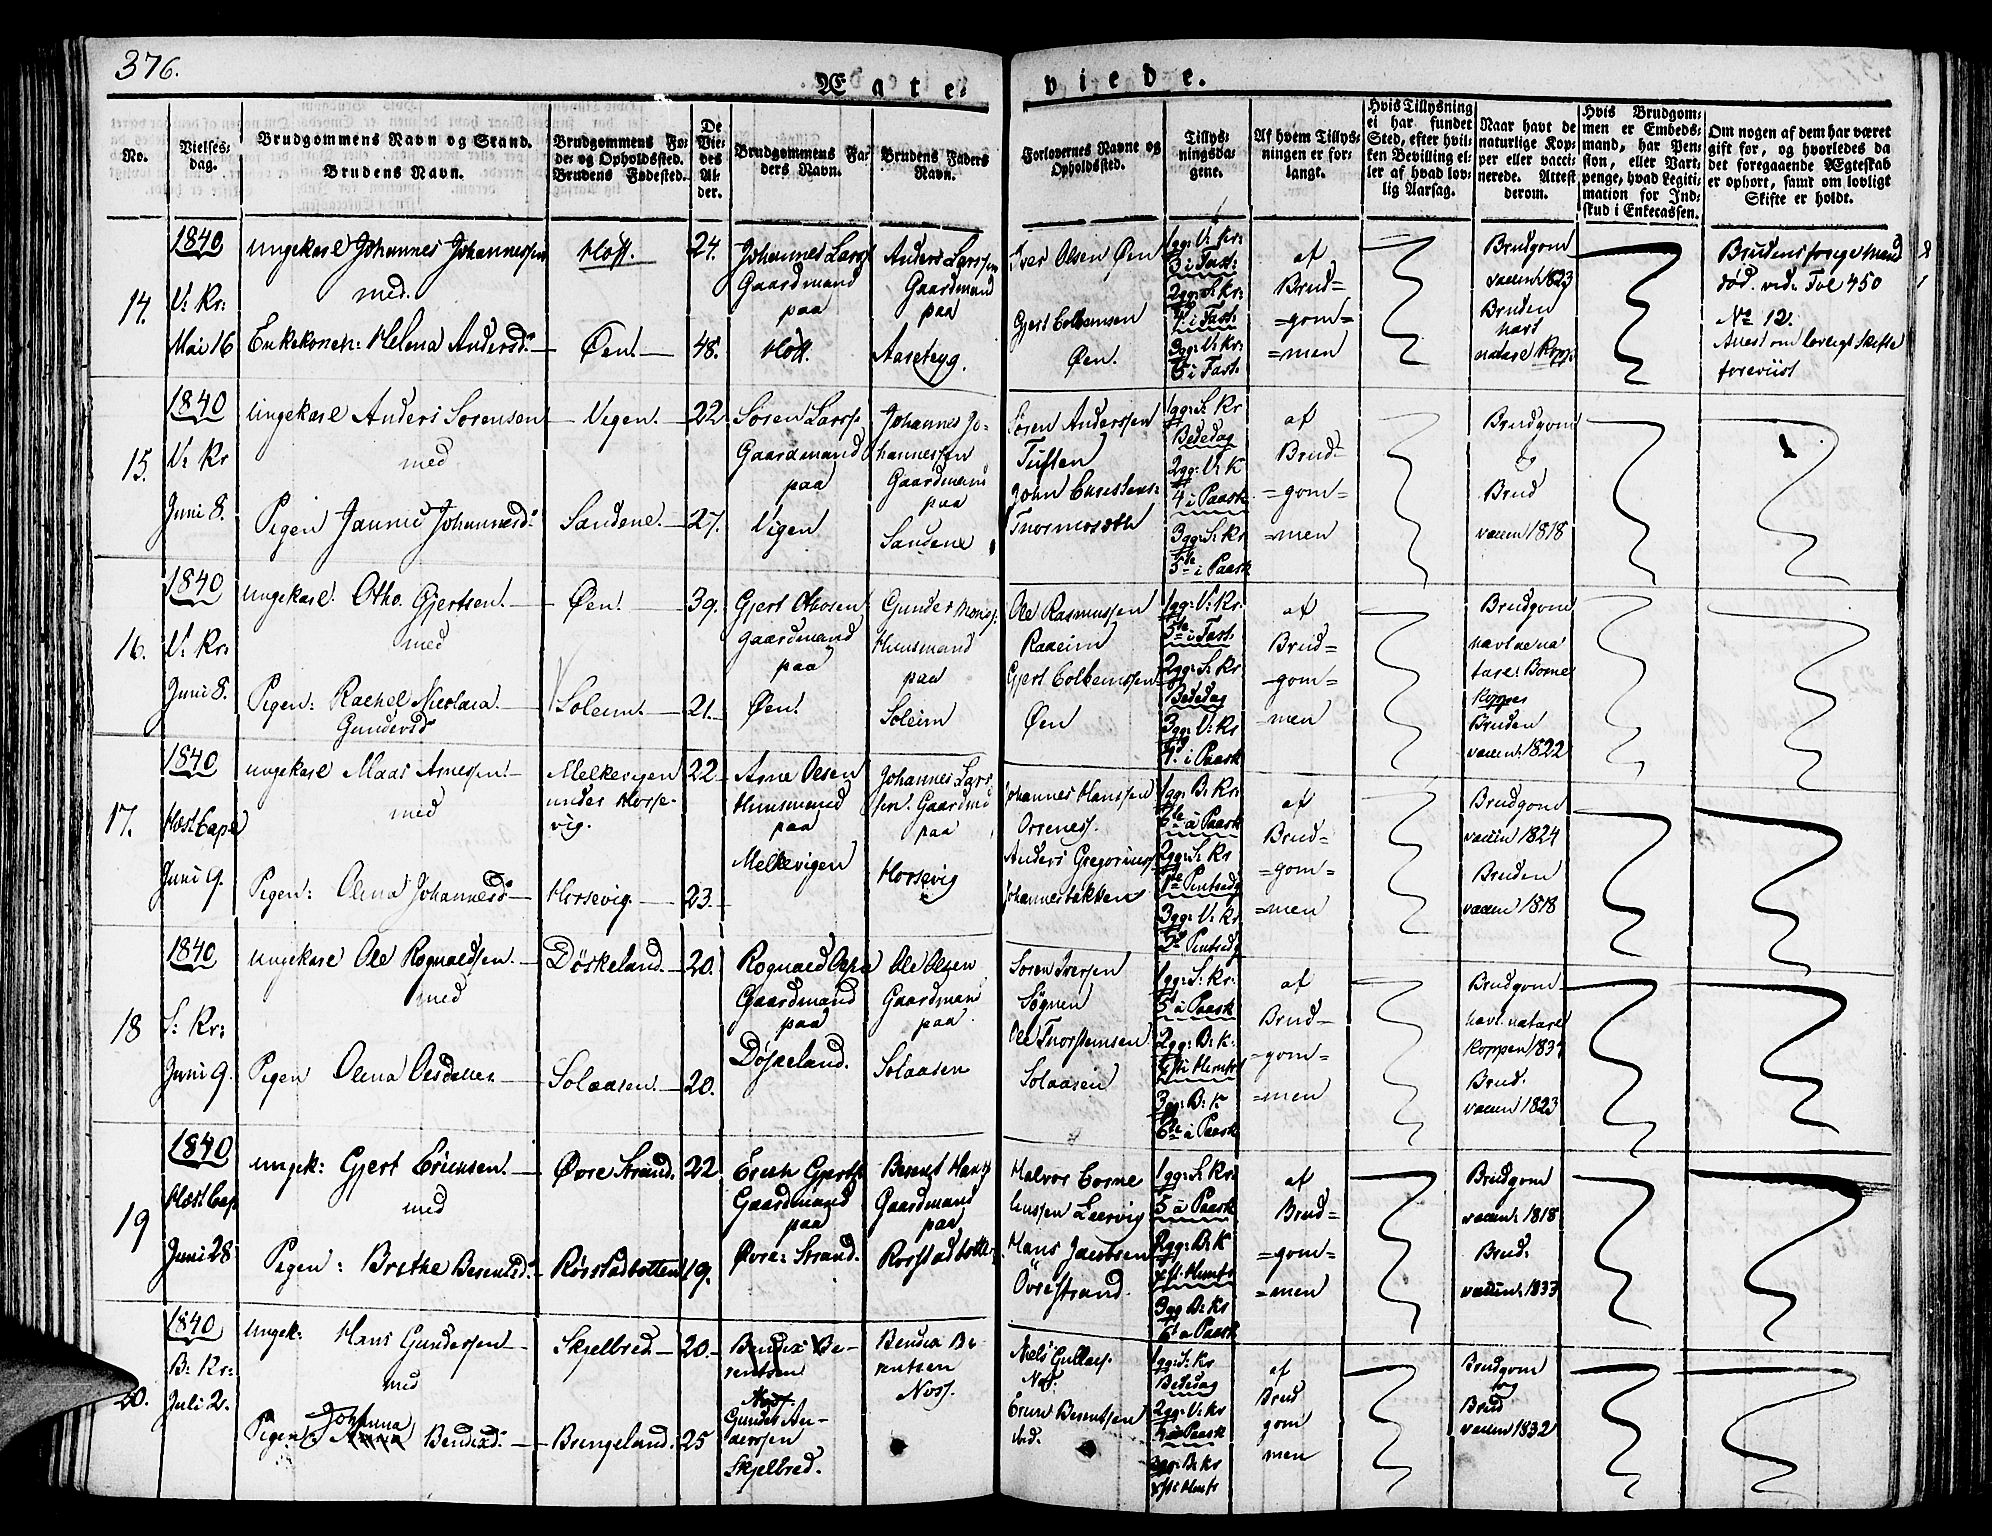 376.
Ægte
viede.
No.
Vielses-
dag.
Brudgommens Navn og Stand.
Brudens Navn.
Brudgommens Fø-
de- og Opholdssted.
Brudens Fødested.
De
Vie-
des
Al-
der.
Brudgommens Fa-
ders Navn.
Brudens Faders
Navn.
Forlovernes Navne og
Opholdssted.
Tillys-
ningsda-
gene.
Af hvem Tillys-
ningen er for-
langt.
Hvis Tillysning
ei har fundet
Sted, efter hvil-
ken Bevilling el-
ler af hvad lov-
lig Aarsag.
Naar havt de
naturlige Kop-
per eller vacci-
nerede. Attest
derom.
Hvis Brudgom-
men er Embeds-
mand, har Pen-
sion, eller Vart-
penge, hvad Legiti-
mation for Ind-
skud i Enkecassen.
Om nogen af dem har været
gift før, og hvorledes da
det foregaaende Ægteskab
er ophørt, samt om lovligt
Skifte er holdt.
14.
1840
V: Kr:
Mai 16
ungekarl Johannes Johannessen
med
Enkekonen: Helena Andersd:
Høtt.
Øen.
24.
48.
Johannes Larss
Gaardmand
paa
Høtt.
Anders Larssen
Gaardmand
paa
Aasebyg.
Iver Olsen Øen
Gjert Colbensen
Øen.
1gg: V: Kr:
3 i Fast:
2gg: S: Kr:
4 i Fast:
3gg: V: Kr:
5 i Fast:
af
Brud=
=gom=
=men
Brudgom
vaccin: 1823
Bruden
havt
naturl Kopp:
Brudens forige Mand
død. vid: Fol 450
No 12.
Attest om lovligt Skifte
foreviist
15.
1840
V: Kr
Juni 8.
Ungekarl Anders Sorensen
med
Pigen Jannie Johannesd:
Vigen.
Sandene.
22.
27.
Soren Larss.
Gaardmand
paa
Vigen
Johannes Jo-
hannessen
Gaardmand
paa
Sandene
Sören Anderssen
Tuften
John Christens:
Tormoseth
1gg: S: Kr
Bededag
2gg: V: K
4 i Paask
3gg: S: Kr
5te i Paask
af
Brud=
=gom=
=men
Brudgom
&
Brud
vaccin 1818
16.
1840
V: Kr:
Juni 8.
ungekarl: Otho Gjertsen.
med
Pigen: Rachel Nicolaea
Gundersd:
Øen!
Soleim.
39.
21.
Gjert Othosen
Gaardmand
paa
Øen!
Gunder Monss:
Huusmand
paa
Soleim
Ole Rasmussen
Raaeim
Gjert Colbenssen
Øen
1gg: V: Kr.
5te i Fast:
2gg: S: Kr
Bededag
3gg: V: Kr
4. i Paask
af
Brud=
gom=
men
Brudgom
havt de na
turl: Børne
Kopper
Bruden
vaccin: 1822
17.
1840
Høst Capel
Juni 9.
ungekarl Maas Arnessen!
med
Pigen: Olena Johannesd:
Melkevigen
under Horse-
vig.
Horsevig.
22.
23.
Arne Olsen
Huusmand
paa
Melkevigen
Johannes Lars
sen. Gaardmd
paa
Horsevig
Johannes Hanssen
Orrenes.
Anders Gregorius
Johannesbakken
1gg: B: Kr:
6te a Paask
2gg: S: Kr
1te Pintsedg
3gg: V: Kr
2. Pintsedg
af
Brud=
=gom=
=men
Brudgom
vaccin 1824
Bruden
vaccin 1818
18
1840
S: Kr:
Juni 9.
ungekarl Ole Rognaldsen.
med
Pigen Olena Olesdatter
Döskeland.
Solaasen.
20.
20.
Rognald Olse
Gaardmand
paa
Døskeland.
Ole Olsen
Gaardmand
paa
Solaasen
Soren Iversen
Søgnen
Ole Thorsteinsen
Solaasen
1gg: S: Kr.
5 a Paask
2gg: B: K:
Xsti Himfs
3gg: B: K
6te a Paask
af
Brud=
=gom=
=men
Brudgom
havt naturl
Koppen 1837
Brud:
vaccin 1823
19
1840
Høst Cap
Juni 28
ungek: Gjert Ericksen.
med
Pigen: Brethe Berentsd:
Øvre Strand.
Rörstadbotten
22.
19.
Erich Gjertss
Gaardmand
paa
Øvre: Strand.
Berent Hanss
Gaardmand
paa
Rørstadbotten
Halvor Corne
liussen Leervig
Hans Jacobsen
Övrestrand.
1gg: S: Kr:
5 a Paask
2gg: B: K
Xsti: Himfs
3gg B: Kr
6 a Paask
af
Brud=
=gom=
=men
Brudgom
vaccin: 1818
Brud:
vaccin: 1833
20.
1840
B: Kr:
Juli 2.
Ungek: Hans Gundersen
med
Pigen: Johanna
Bendixd:
Skjelbred.
Brengeland.
20.
25
Bendix Be-
rentsen
Noss.
Gunder An-
derssen
Skjelbred.
Bendix Be
rentsen
Noss.
Niels Gullacks
Noss.
Erick Berentsen
ibid.
1gg: S: Kr
Bededag
2gg: V: Kr
4 a Paask
3gg: B: Kr
Xsti Himfs
af
Brud
gom
men
Brudgom
og
Brud
vaccin 1832